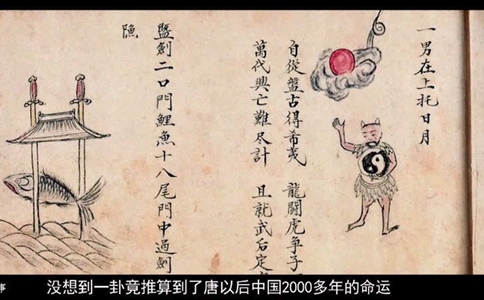 一男在上托日月
自從盤古得希夷 龍鬭虎爭子
萬代興亡難尽計 且就武后定
劍二口門鯉魚十八尾門中過劍
事
没想到一卦竟推算到了唐以后中国2000多年的命运